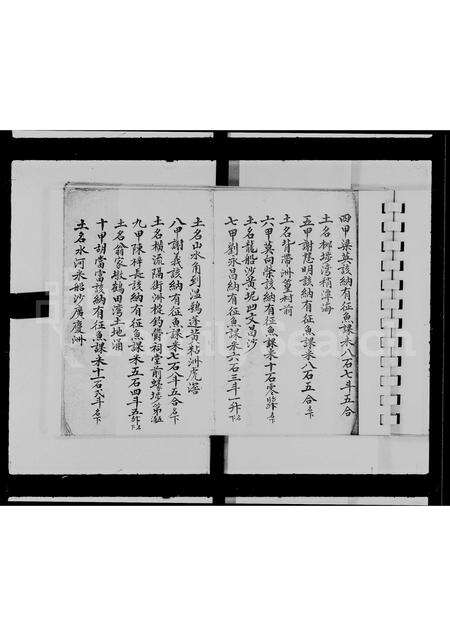 四甲梁英該納有征魚課米八石七斗五合
土名柳塝湾稍潭海
五甲謝志明該納有征魚課米八石五合名下
土名背滯洲篁村前
六甲莫向榮該納有征魚課米十石零
土名龍船沙黃坭凹文昌沙
七甲劉永昌納有征魚課米六石三斗一升
土名山水角到溫鷄逕黃粘洲虎
八甲謝義該納有征魚課米七石八斗五合名下
土名横流隔街洲
祠堂前
九甲陳梓長該納有征魚課米五石四斗
土名翁家墩鶴田湾土地涌
十甲胡當當該納有征魚課米十一石六斗名下
土名水河永船沙廣慶洲